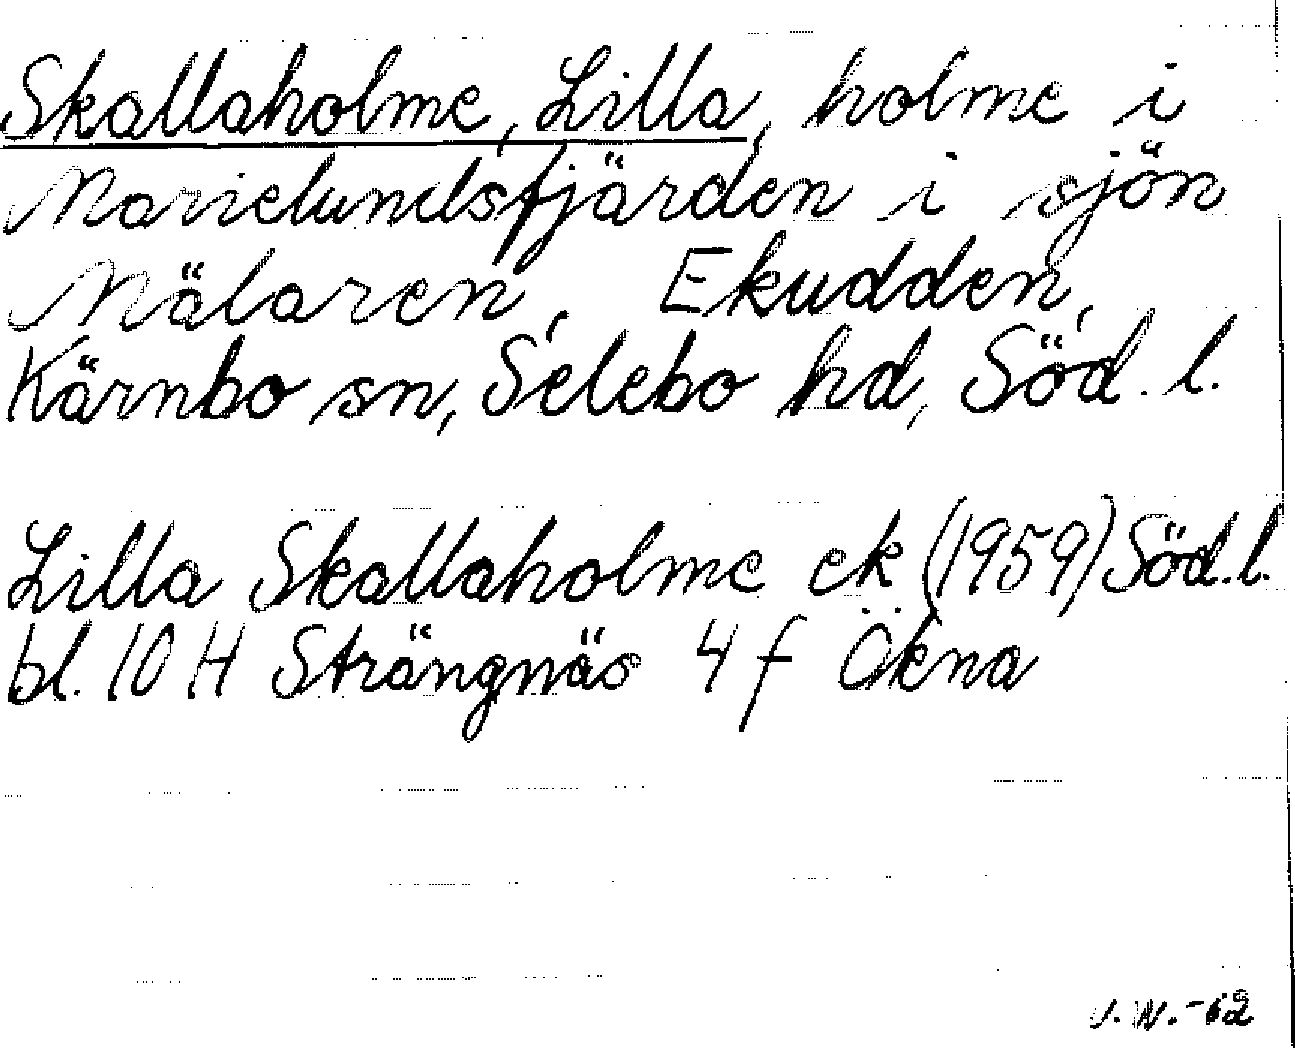 Skallaholme, Lilla, holme i
Marielundsfjärden i sjön
Mälaren, Ekudden,
Kärnbo sn, Selebo hd, Söd. l.
Lilla Skallaholme ek (1959) Söd. l.
bl. 10 H Strängnäs 4 f Ökna
J. W. -62